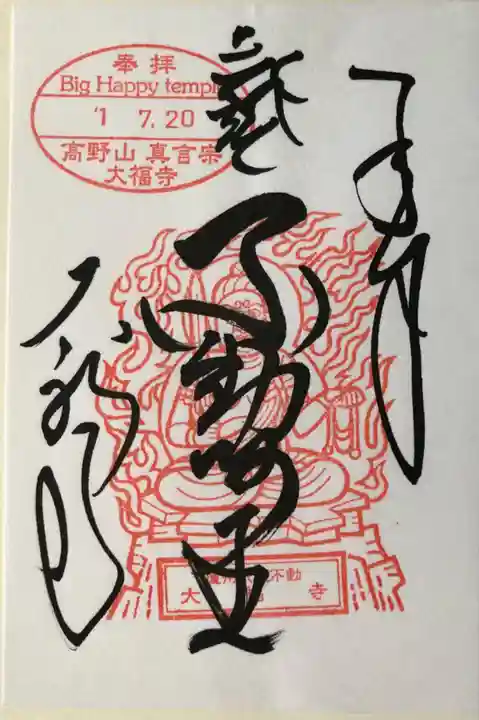 奉拝
Big Happy templ
'1 7.20
高野山 真言宗
大福寺
奉拝
不動明王
大福寺
不動
大 寺